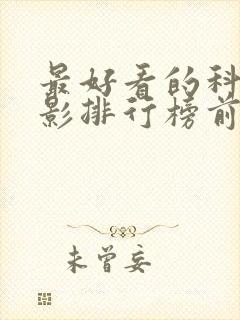 最好看的科
影排行榜前
未曾妄